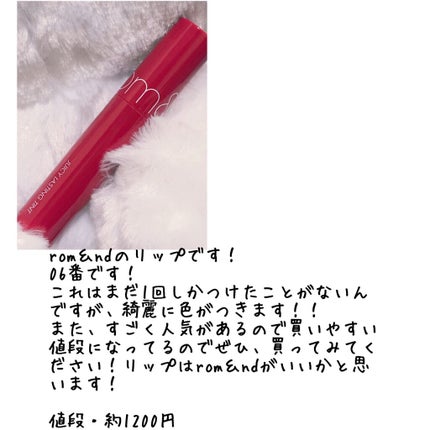 rom&
JUICY LASTING TINT
rom&ndのリップです！
06番です！
これはまだ1回しかつけたことがないん
ですが、綺麗に色がつきます！！
また、すごく人気があるので買いやすい
値段になってるのでぜひ、買ってみてく
ださい！リップはrom&ndがいいかと思
います！
値段・約1200円